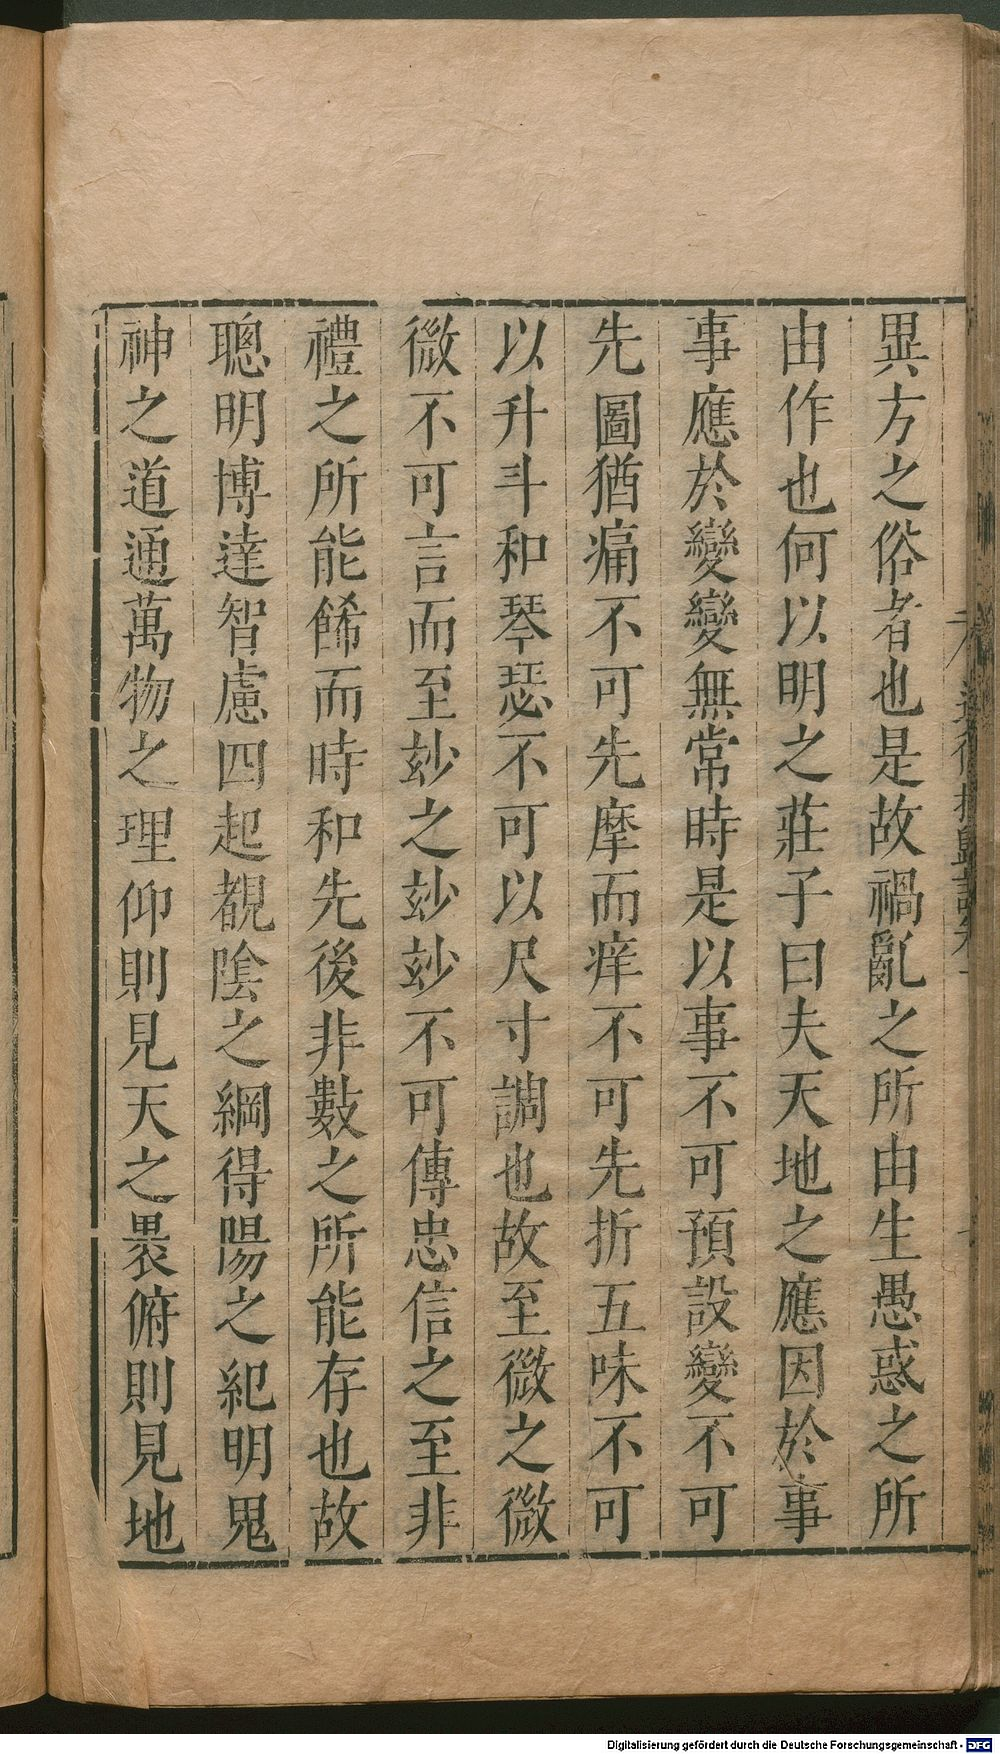 異方之俗者也是故禍亂之所由生愚惑之所
由作也何以明之莊子曰夫天地之應因於事
事應於變變無常時是以事不可預設變不可
先圖猶痛不可先摩而痒不可先折五味不可
以升斗和琴瑟不可以尺寸調也故至微之微
微不可言而至玅之玅玅不可傳忠信之至非
禮之所能餙而時和先後非數之所能存也故
聰明博達智慮四起覩隂之綱得陽之紀明鬼
神之道通萬物之理仰則見天之裏俯則見地
Digitalisierung gefördert durch die Deutsche Forschungsgemeinschaft - DFG